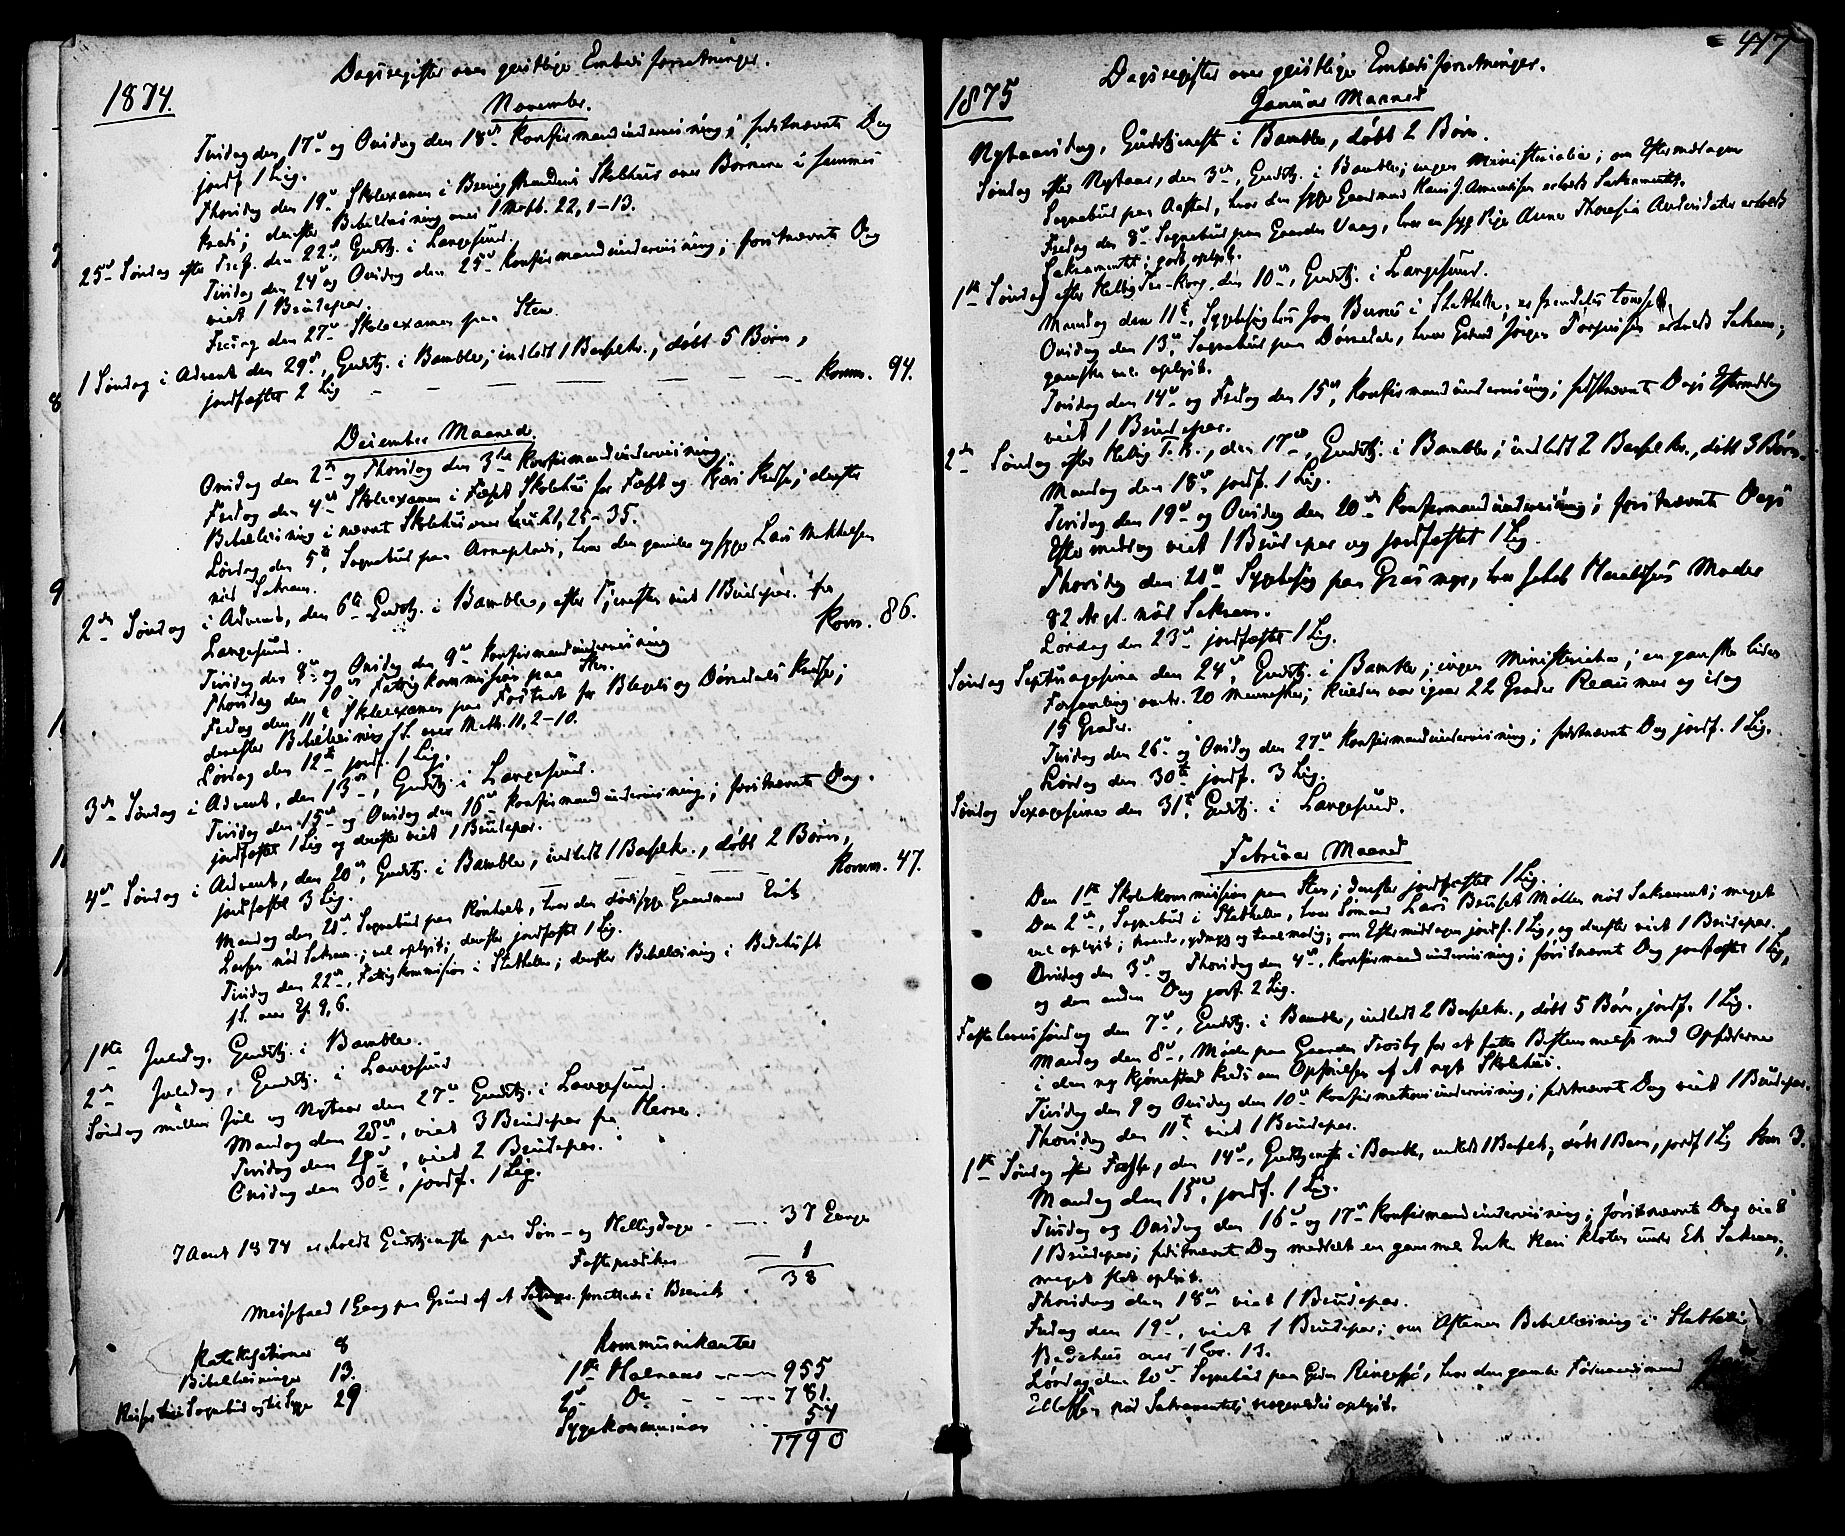 Dagsregister over geistlige Embedsforretninger.
1874.
November.
Tirsdag den 17de og Onsdag den 18de Konfirmandundervisning; sidstnævnte Dag
jordf. 1 Lig.
Thorsdag den 19de Skoleexamen i Skolehus over Børnene i samme
Kreds; derefter Bibellæsning over 1 Moseb. 22, 1-13.
25de Søndag efter Tref. den 22de, Gudstj. i Langesund.
Tirsdag den 24de og Onsdag den 25de Konfirmandundervisning; førstnævnte Dag
viet 1 Brudepar.
Fredag den 27de Skoleexamen paa Sten.
1 Søndag i Advent den 29de, Gudstj. i Bamble; indledt 1 Barselk., døbt 5 Børn,
jordfæstet 2 Lig — Komm. 94.
December Maaned.
Onsdag den 2den og Thorsdag den 3die Konfirmandundervisning.
Fredag den 4de Skoleexamen i Skolehus for og Kjøs Kredse; derefter
Bibellæsning i nævnte Skolehus over Luk. 21, 25-35.
Lørdag den 5te, Sognebud paa, hvor den gamle og syge Lars Mikkelsen
nød Sakram.
2den Søndag i Advent, den 6te Gudstj. i Bamble, efter Tjenesten viet 1 Brudepar fra
Langesund. Kom. 86.
Tirsdag den 8de og Onsdag den 9de Konfirmandundervisning
Thorsdag den 10de Fattigkommission paa Sten.
Fredag den 11te Skoleexamen paa for og Dørdals Kredse;
derefter Bibellæsning s. S. over Math. 11, 2-10.
Lørdag den 12te jordf. 1 Lig.
3die Søndag i Advent, den 13de, Gudstj. i Langesund.
Tirsdag den 15de og Onsdag den 16de Konfirmandundervisning; førstnævnte Dag.
jordfæstet 1 Lig og derefter viet 1 Brudepar.
4de Søndag i Advent, den 20de, Gudstj. i Bamble, indledt 1 Barselk., døbt 2 Børn,
jordfæstet 3 Lig. — Komm. 47.
Mandag den 21de Sognebud paa Rønholt, hvor den dødssyge Gaardmand Erik
Larsen nød Sakram.; vel oplyst; derefter jordfæstet 1 Lig.
Tirsdag den 22de, Fattigkommission i Stathelle; derefter Bibellæsning i Bedehuset
s. S. over Es. 9, 6.
1ste Juledag. Gudstj. i Bamble.
2den Juledag, Gudstj. i Langesund
Søndag mellem Jul og Nytaar den 27de Gudstj. i Langesund.
Mandag den 28de, viet 3 Brudepar fra Herre.
Tirsdag den 29de, viet 2 Brudepar.
Onsdag den 30te, jordf. 1 Lig.
I Aaret 1874 er holdt Gudstjeneste paa Søn- og Helligdage — 37 Gange
Fasteprædiken 1
38
Messefald 1 Gang paa Grund af at forrettede i Brevik
Katekisationer 8
Bibellæsninger 13.
Reiser til Sognebud og til Syge 29
Kommunikanter
1ste Halvaar — 955
2det Do — 781.
Sygekommunion 54
1790
447
Dagsregister over geistlige Embedsforretninger.
1875
Januar Maaned
Nytaarsdag, Gudstjeneste i Bamble, døbt 2 Børn.
Søndag efter Nytaar, den 3die, Gudstj. i Bamble; ingen Ministerialia; om Eftermiddagen
Sognebud paa Aasted, hvor den syge Gaardmand Hans J. erholdt Sakramentet.
Fredag den 8de Sognebud paa Gaarden Vaag, hvor en syg Pige Anne Theresia Andersdatter erholdt
Sakramentet; godt oplyst.
1ste Søndag efter Hellig Tre-Kong. den 10de, Gudstj. i Langesund.
Mandag den 11te, Sygebesøg hos Jon i Stathelle;
Onsdag den 13de, Sognebud paa Dørdal, hvor Jørgen erholdt Sakram.;
ganske vel oplyst.
Torsdag den 14de og Fredag den 15de, Konfirmandundervisning; sidstnævnte Dags Eftermiddag
viet 1 Brudepar.
2den Søndag efter Hellig T. K., den 17de, Gudstj. i Bamble; indledt 2 Barselk., døbt 3 Børn.
Mandag den 18de, jordf. 1 Lig.
Tirsdag den 19de og Onsdag den 20de Konfirmandundervisning; førstnævnte Dags
Eftermiddag viet 1 Brudepar og jordfæstet 1 Lig.
Thorsdag den 21de Sygebesøg paa, hvor Jakob Moder
82 Ar gl. nød Sakram.
Lørdag den 23de jordfæstet 1 Lig.
Søndag Septuagesima den 24de, Gudstj. i Bamble; ingen Ministerialia; en ganske liden
Forsamling omtr. 20 Mennesker; Kulden var igaar 22 Grader Reaumur og idag
15 Grader.
Tirsdag den 26de og Onsdag den 27de Konfirmandundervisning; sidstnævnte Dag jordf. 1 Lig.
Lørdag den 30te jordf. 3 Lig.
Søndag Sexagesima den 31te, Gudstj. i Langesund.
Februar Maaned
Den 1ste Skolekommission paa Sten; derefter jordfæstet 1 Lig.
Den 2den, Sognebud i Stathelle, hvor Sømand Lars Møller nød Sakrament; meget
vel oplyst; ydmyg og taalmodig; om Eftermiddagen jordf. 1 Lig, og derefter viet 1 Brudepar.
Onsdag den 3die og Thorsdag den 4de, Konfirmandundervisning; førstnævnte Dag jordfæstet 1 Lig,
og den anden Dag jordf. 2 Lig.
Fastelavnssøndag den 7de, Gudstj. i Bamble, indledt 2 Barselk., døbt 5 Børn, jordf. 1 Lig.
Mandag den 8de, Møde paa Gaarden Trosby for at fatte Bestemmelse med Opsidderne
i den ny Kjønstad Kreds om Opførelsen af et nyt Skolehus.
Tirsdag den 9 og Onsdag den 10de Konfirmationsundervisning; sidstnævnte Dag viet 1 Brudepar.
Thorsdag den 11te viet 1 Brudepar.
1ste Søndag efter Faste, den 14de, Gudstjeneste i Bamble, indledt 1 Barselk., døbt 1 Barn, jordf. 1 Lig Kom 3.
Mandag den 15de, jordf. 1 Lig.
Tirsdag og Onsdag den 16de og 17de Konfirmandundervisning; førstnævnte Dag viet
1 Brudepar; sidstnævnte Dag meddelt en gammel Enke Kari under Ek Sakram.,
meget slet oplyst.
Thorsdag den 18de viet 1 Brudepar.
Fredag den 19de, viet 1 Brudepar; om Aftenen Bibellæsning i Stathelle
Bedehus over 1 Cor. 13.
Lørdag den 20de Sognebud paa Gaarden Ringesjø, hvor den gamle
Ellefsen nød Sakramentet; nogenledes oplyst.